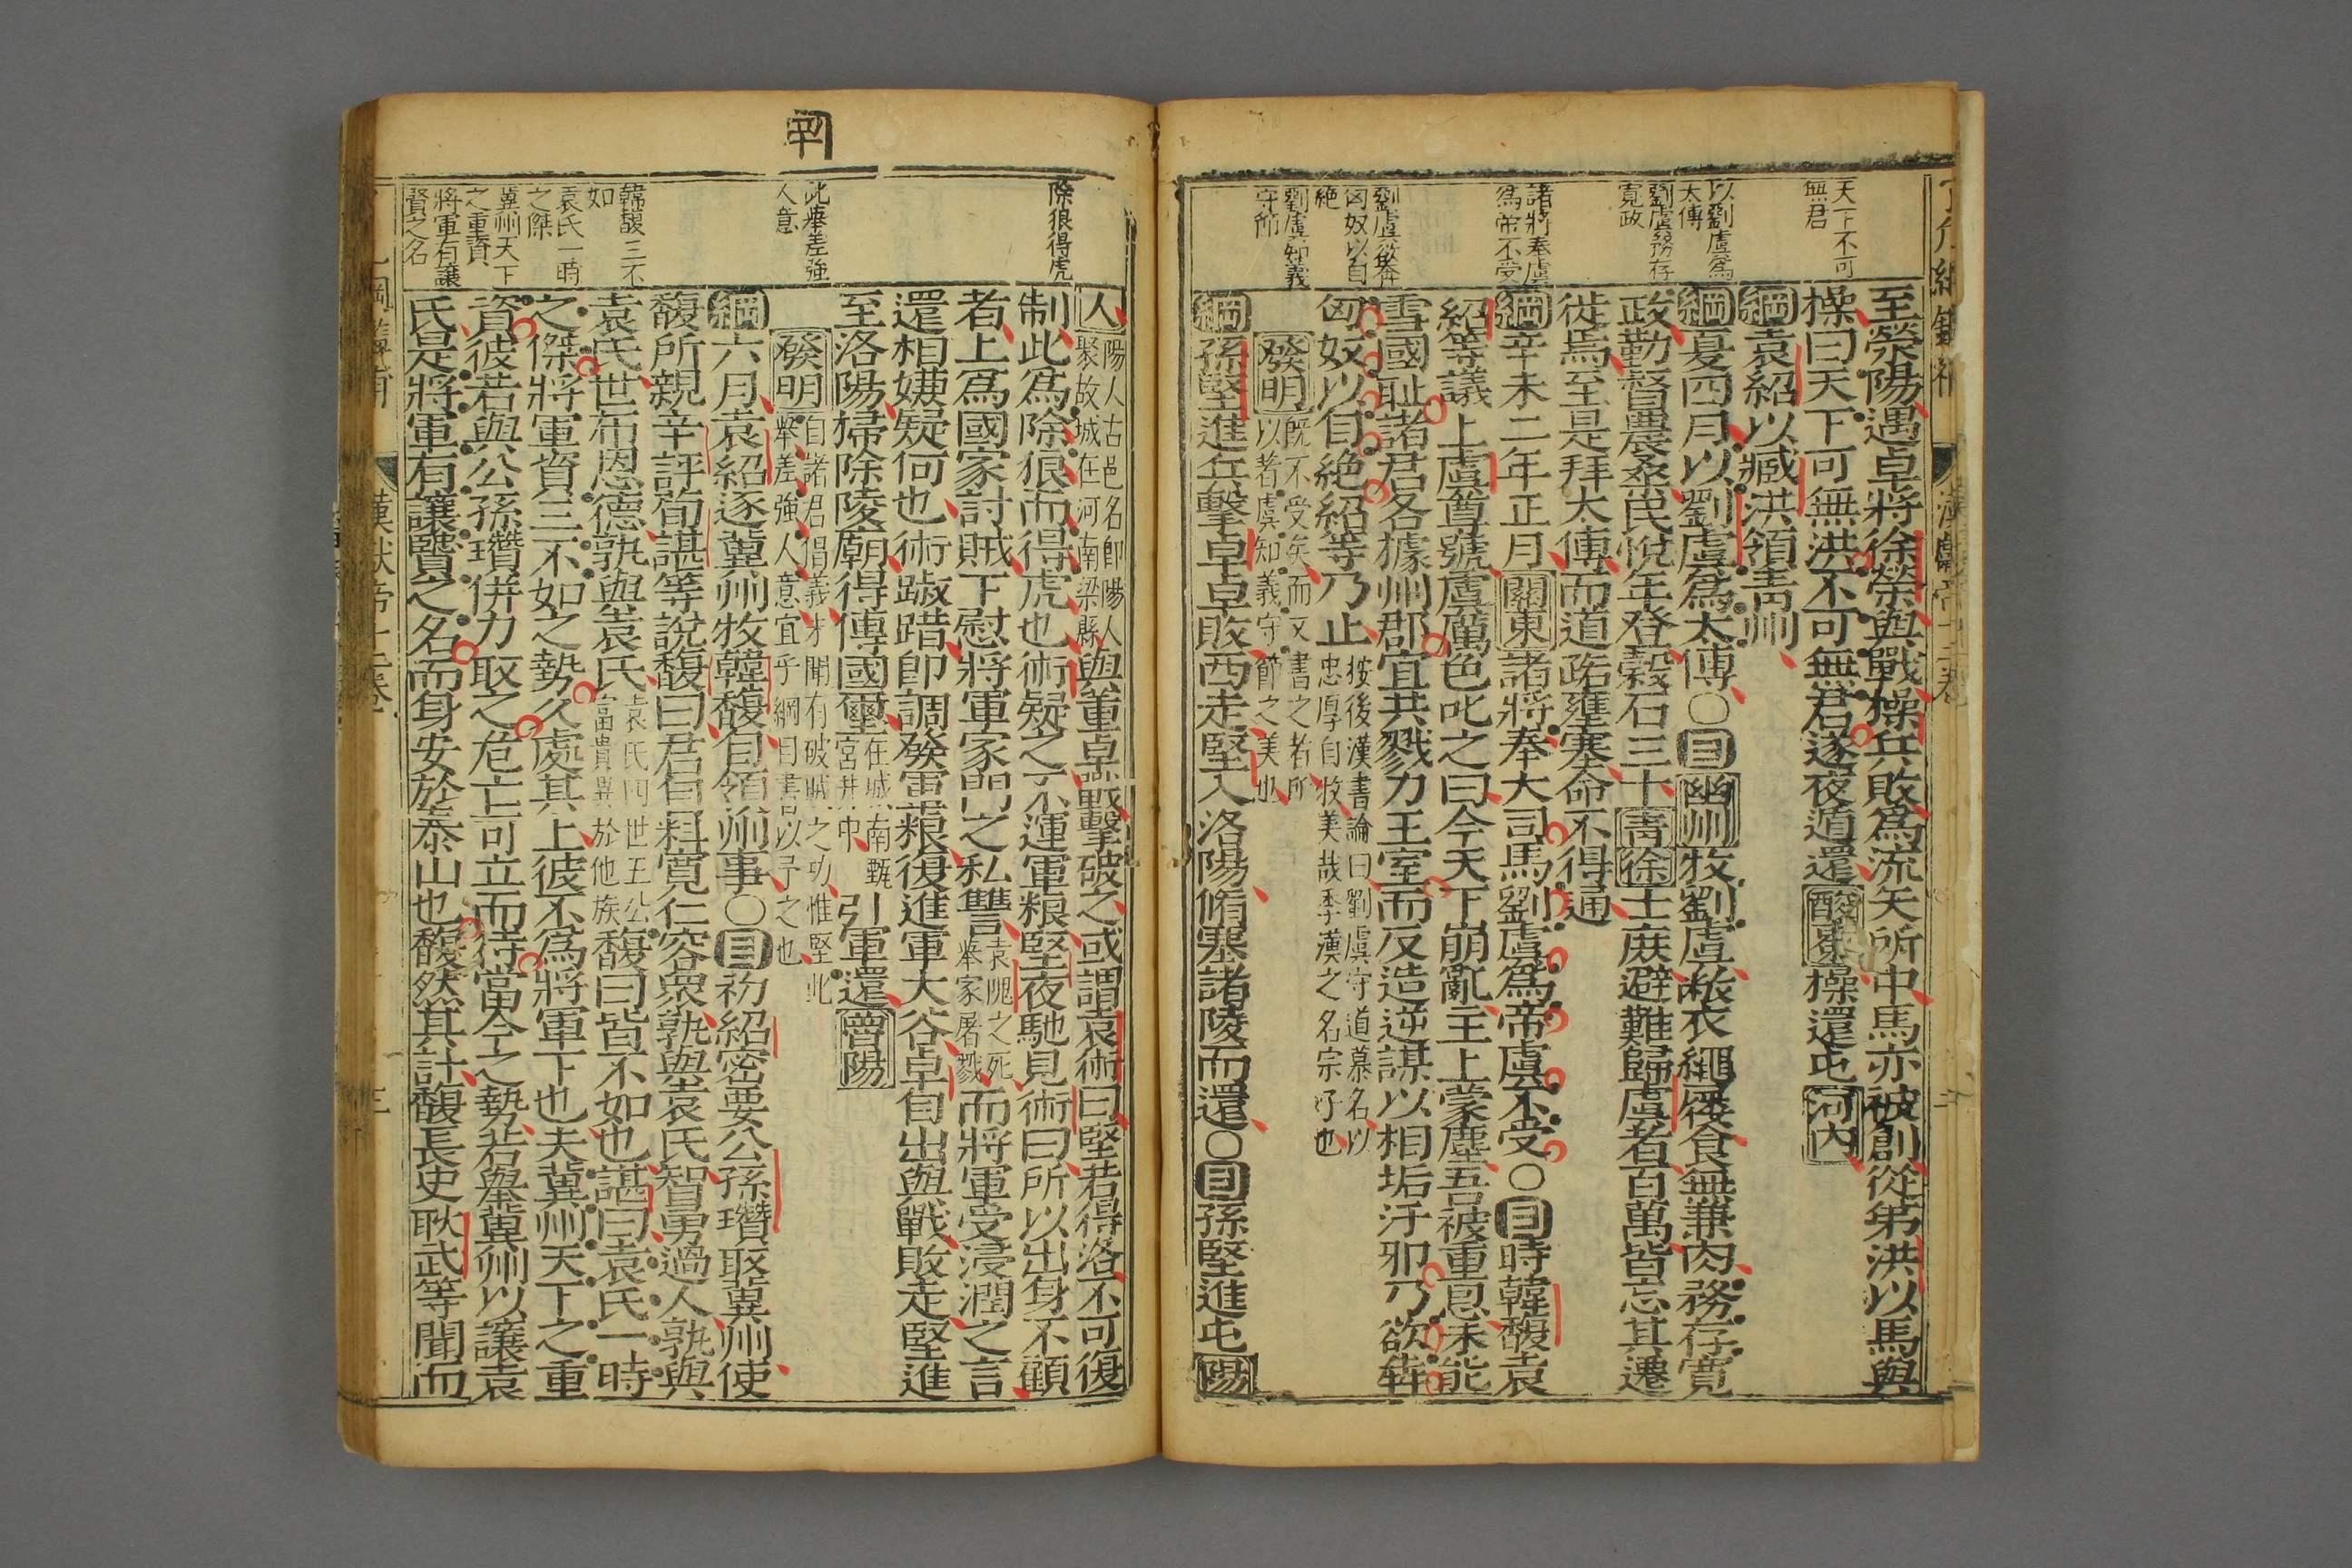 天下不可
無君
以劉虞爲
太傅
劉虞務存
寬政
諸將奉虞
爲帝不受
劉虞欲奔
匈奴以自
絶
劉虞知義
守節
至滎陽遇卓將徐榮與戰操兵敗爲流矢所中馬亦被創從弟洪以馬與
操曰天下可無洪不可無君遂夜遁還酸棗操還屯河內
綱袁紹以臧洪領靑州
綱夏四月以劉虞爲太傅○目幽州牧劉虞敝衣繩屨食無兼肉務存寬
政勸督農桑民悅年登穀石三十靑徐士庶避難歸虞者百萬皆忘其遷
徙焉至是拜太傅而道路壅塞命不得通
綱辛未二年正月關東諸將奉大司馬劉虞爲帝虞不受○目時韓馥袁
紹等議上虞尊號虞厲色叱之曰今天下崩亂主上蒙塵吾被重恩未能
雪國耻諸君各據州郡宜共戮力王室而反造逆謀以相垢汙邪乃欲奔
匈奴以自絕紹等乃止
按後漢書論曰劉虞守道慕名以
忠厚自牧美哉季漢之名宗子也
發明
旣不受矣而又書之者所
以著虞知義守節之美也
綱孫堅進兵擊卓卓敗西走堅入洛陽脩塞諸陵而還○目孫堅進屯陽
除狼得虎
此舉差強
人意
韓馥三不
如
袁氏一時
之傑
冀州天下
之重資
將軍有讓
賢之名
人
陽人古邑名卽陽人
聚故城在河南梁縣
與董卓戰擊破之或謂袁術曰堅若得洛不可復
制此爲除狼而得虎也術疑之不運軍粮堅夜馳見術曰所以出身不顧
者上爲國家討賊下慰將軍家門之私讐
袁隗之死
舉家屠戮
而將軍受浸潤之言
還相嫌疑何也術踧踖卽調發軍粮復進軍大谷卓自出與戰敗走堅進
至洛陽掃除陵廟得傳國璽
在城南甄
宮井中
引軍還魯陽
發明
自諸君倡義才聞有破賊之功惟堅此
舉差強人意宜乎綱目書以予之也
綱六月袁紹逐冀州牧韓馥自領州事○目初紹密要公孫瓚取冀州使
馥所親辛評荀諶等說馥曰君自料寬仁容衆孰與袁氏智勇過人孰與
袁氏世布恩德孰與袁氏
袁氏四世五公
富貴異於他族
馥曰皆不如也諶曰袁氏一時
之傑將軍資三不如之勢久處其上彼不爲將軍下也夫冀州天下之重
資彼若與公孫瓚併力取之危亡可立而待當今之勢若舉冀州以讓袁
氏是將軍有讓賢之名而身安於泰山也馥然其計馥長史耿武等聞而